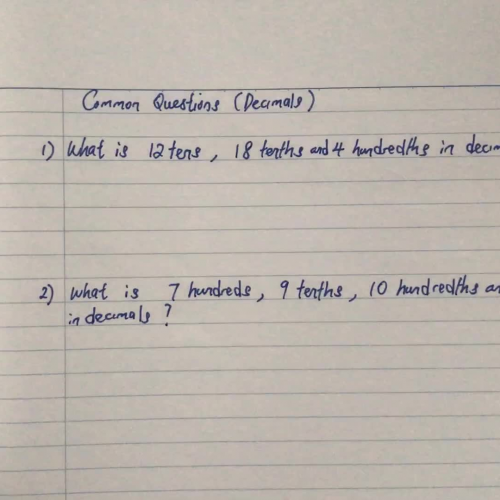 Common Questions (Decimals)
1) What is 12 tens, 18 tenths and 4 hundredths in decim
2) What is 7 hundreds, 9 tenths, 10 hundredths an
in decimals?